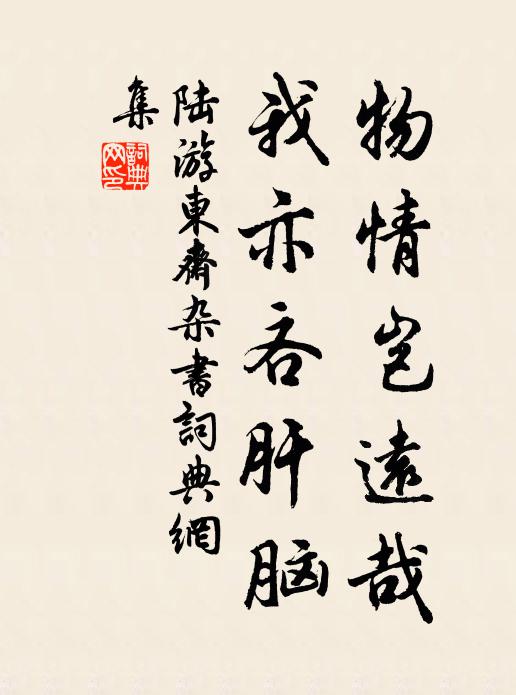 物情岂遠哉
我亦吝肝脑
陆游東齋杂書詞典網
集
詞典
网印